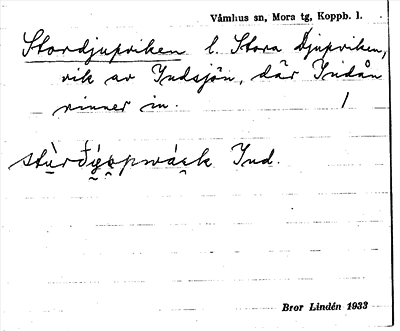 Våmhus sn, Mora tg, Koppb. l.
Stordjupviken l. Stora Djupviken,
vik av Indsjön, där Indån
rinner in. 1
Ind.
Bror Lindén 1933